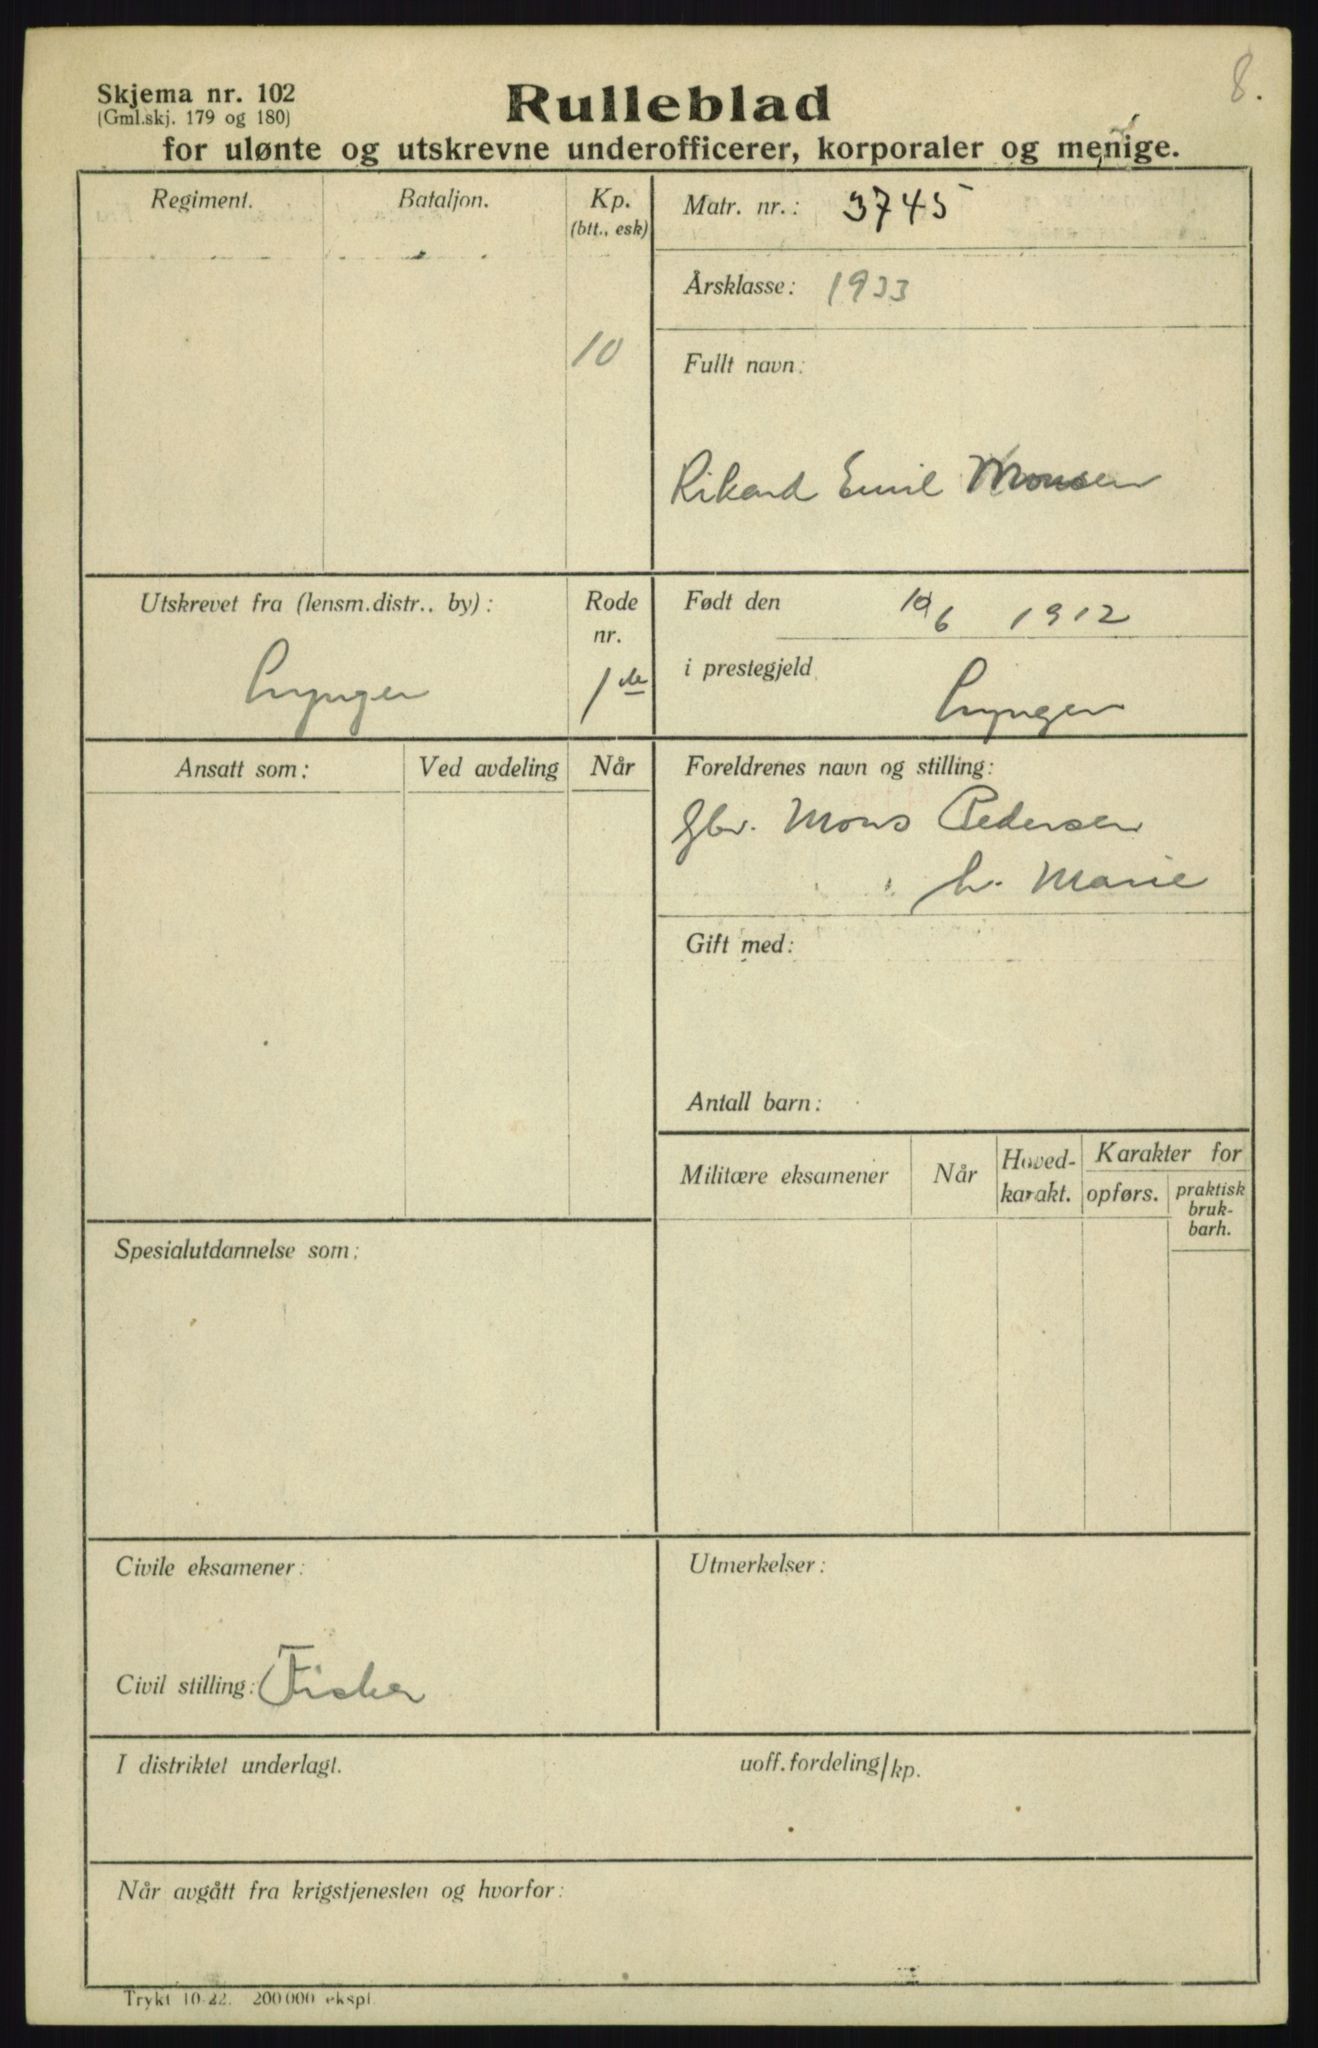 8.
Skjema nr. 102
(Gml.skj. 179 og 180)
Rulleblad
for ulønte og utskrevne underofficerer, korporaler og menige.
Regiment.
Bataljon.
Kp.
(btt., esk)
10
Matr. nr.: 3745
Årsklasse: 1933
Fullt navn:
Rikard Emil Monsen
Utskrevet fra (lensm.distr.. by):
Lyngen
Rode
nr.
1ste
Født den 10/6 1912
i prestegjeld
Lyngen
Ansatt som:
Ved avdeling
Når
Foreldrenes navn og stilling:
Gbr. Mons Pedersen
h. Marie
Gift med:
Antall barn:
Militære eksamener
Når
Hoved-
karakt.
Karakter for
opførs.
praktisk
bruk-
barh.
Spesialutdannelse som:
Civile eksamener:
Civil stilling: Fisker
Utmerkelser:
I distriktet underlagt.
uoff. fordeling/kp.
Når avgått fra krigstjenesten og hvorfor:
Trykt 10-22. 200 000 ekspl.